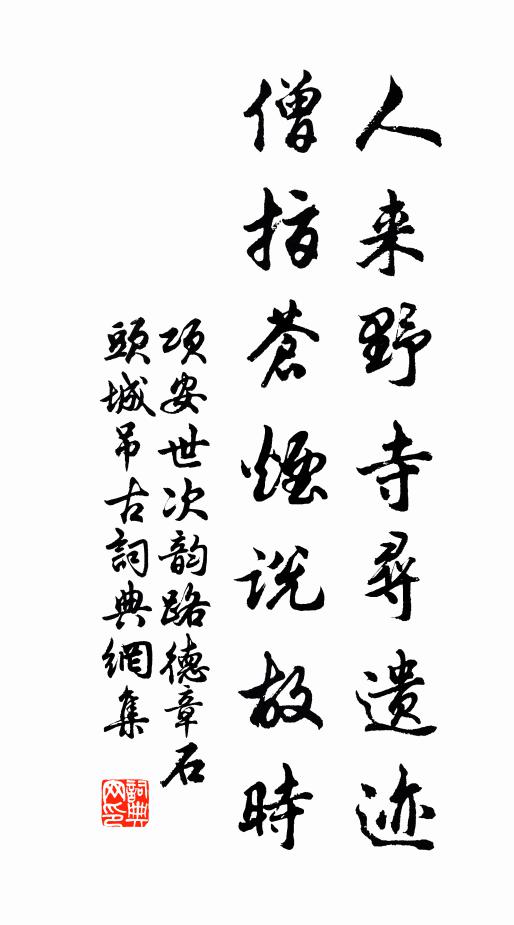 人来野寺尋遺迹
僧指蒼煙説故時
項安世次韵路德章石
頭城吊古詞典網集
詞典
网印